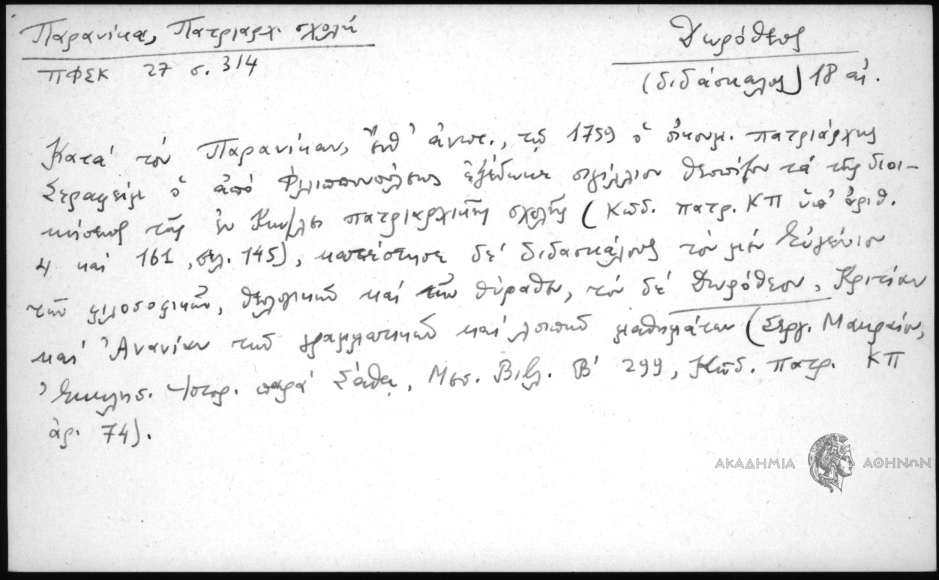 Παρανίκα, Πατριαρχ. σχολή
ΠΦΣΚ 27 σ. 314
Δωρόθεος
(διδάσκαλος) 18 αἰ.
Κατὰ τὸν Παρανίκαν, ἔνθ' ἀνωτ., τῷ 1759 ὁ οἰκουμ. πατριάρχης
Σεραφεὶμ ὁ ἀπὸ Φιλιππουπόλεως ἐξέδωκε σιγίλλιον θεσπίζον τὰ τῆς διοι-
κήσεως τῆς ἐν Κων/λει πατριαρχικῆς σχολῆς (Κῶδ. πατρ. ΚΠ ὑπ' ἀριθ.
4 καὶ 161, σελ. 145), κατέστησε δὲ διδασκάλους τὸν μὲν Εὐγένιον
τῶν φιλοσοφικῶν, θεολογικῶν καὶ τῶν θύραθεν, τὸν δὲ Δωρόθεον, Κριτίαν
καὶ Ἀνανίαν τῶν γραμματικῶν καὶ λοιπῶν μαθημάτων (Σεργ. Μακραίου,
Ἐκκλησ. Ἱστορ. παρὰ Σάθᾳ, Μεσ. Βιβλ. Β' 299, Κῶδ. πατρ. ΚΠ
ἀρ. 74).
ΑΚΑΔΗΜΙΑ ΑΘΗΝΩΝ